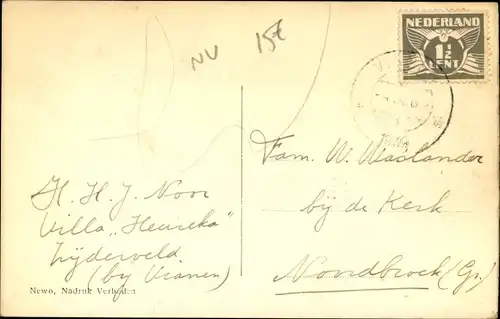 NV 15€
NEDERLAND
1½
CENT
Fam. W. Waslander
bij de Kerk
Noordbroek (Gr.)
H. H. J. Noor
Villa „Heureka"
Zijderveld
(by Vianen)
Newo, Nadruk Verboden